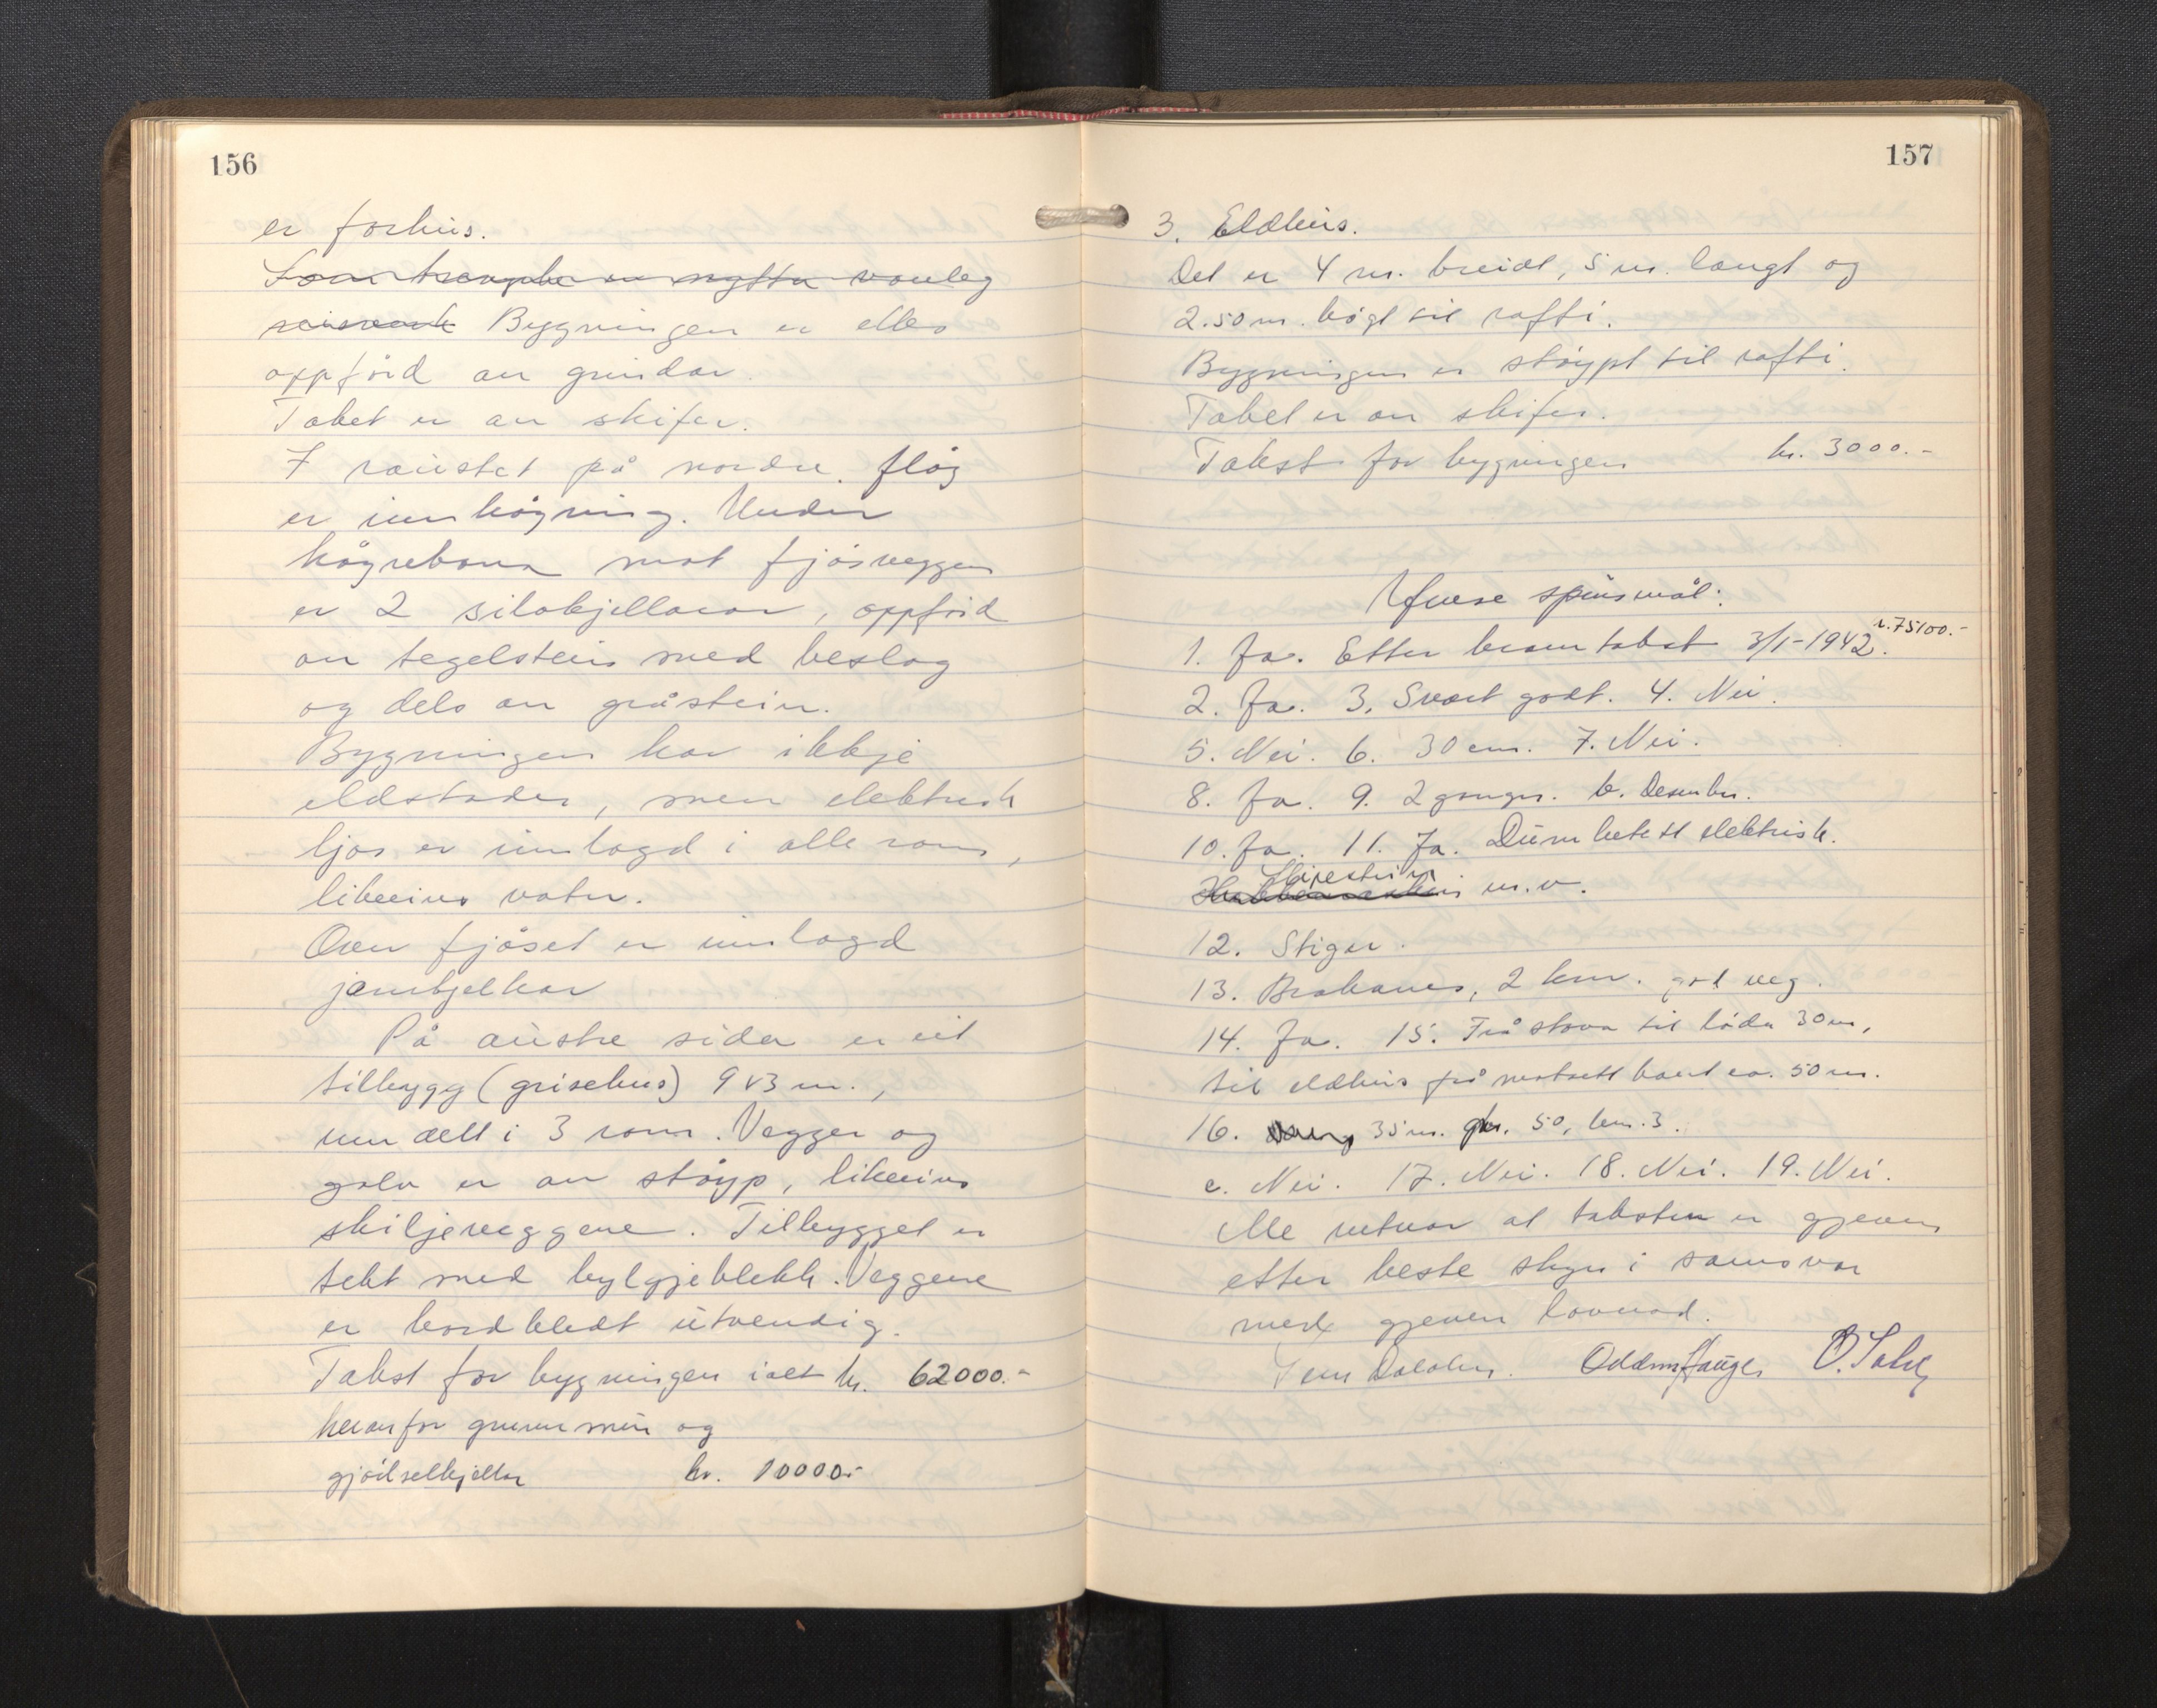 156
er forhus.
Som trempla er nytta vanleg
reisverk Bygningen er elles
oppförd av grindar.
Taket er av skifer.
I röustet på nordre flög
er innkøgning. Under
högrebrua mot fjösveggen
er 2 silokjellarar, oppförd
av tegelstein med beslag
og dels av gråstein.
Bygningen har ikkje
eldstader, men elektrisk
ljos er innlagd i alle rom,
likeeins vatn.
Over fjöset er innlagd
jarnbjelkar
På austre sida er eit
tilbygg (grisehus) 9 x 3 m.,
inndelt i 3 rom. Vegger og
golv er av stöyp, likeeins
skiljeveggene. Tilbygget er
tekt med bylgjeblekk. Veggene
er bordkledt utvendig.
Takst for bygningen ialt kr. 62000.-
herav for grunnmur og
gjödselkjellar kr. 10000.-
157
3. Eldhus.
Det er 4 m. breidt, 5 m. langt og
2.50 m. högt til rafti.
Bygningen er stöypt til rafti.
Taket er av skifer.
Takst for bygningen kr. 3000.-
Ymse spursmål:
1. Ja. Etter branntakst 3/1-1942. kr. 75100.-
2. Ja. 3. Svært godt. 4. Nei.
5. Nei. 6. 30 cm. 7. Nei.
8. Ja. 9. 2 gonger. b. Desember.
10. Ja. 11. Ja. elektrisk.
m.v.
12. Stigar.
13. Brakanes, 2 km. god veg.
14. Ja. 15. Frå stova til löda 30 m,
til eldhus frå motsett kant ca. 50 m.
16. 35 m. 50, km. 3.
c. Nei. 17. Nei. 18. Nei. 19. Nei.
Me vitnar at taksten er gjeven
etter beste skyn i samsvar
med gjeven lovnad.